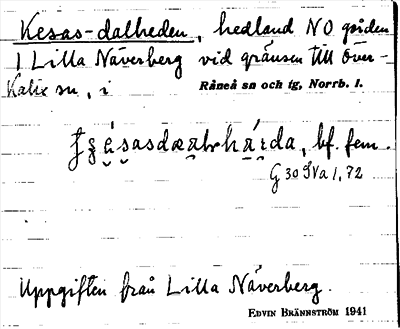 Kesas-dalheden, hedland NO gården
1 Lilla Näverberg vid gränsen till Över-
Kalix sn, i Råneå sn och tg, Norrb. l.
bf. fem.
G 30 SVa 1, 72
Uppgiften från Lilla Näverberg.
EDVIN BRÄNNSTRÖM 1941